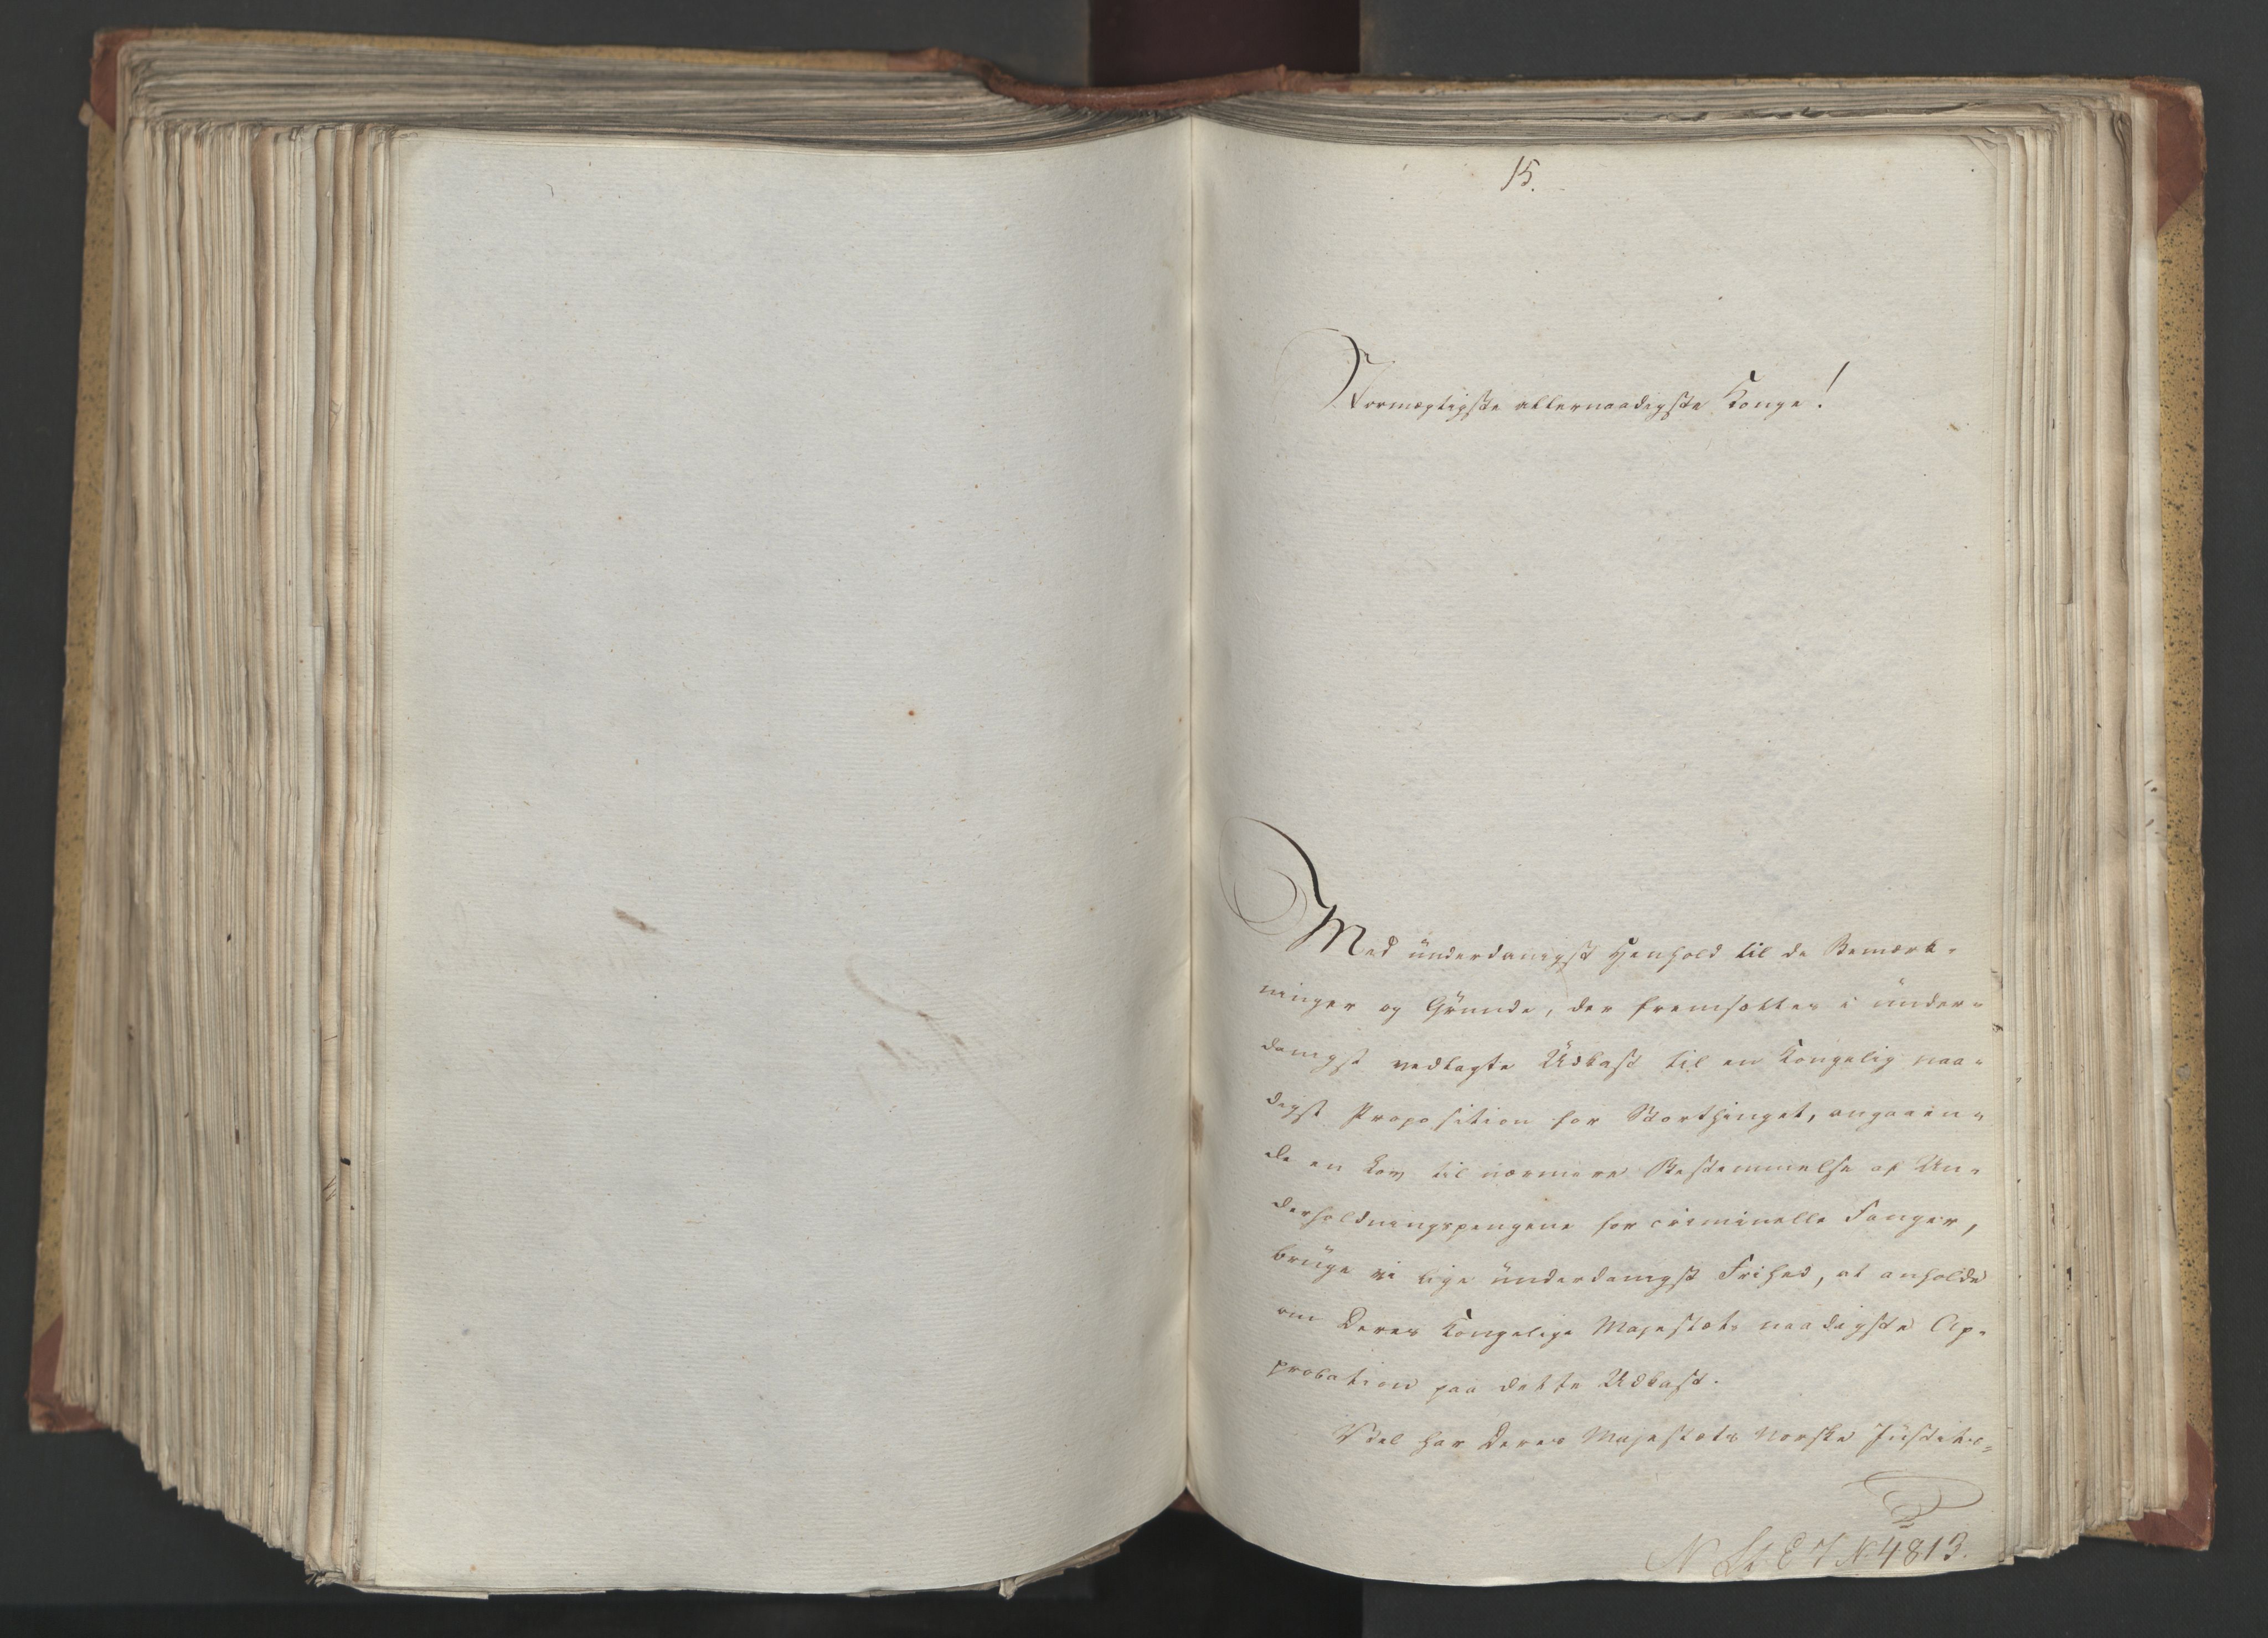 15.
Stormægtigste allernaadigste Konge!
Med underdanigst Henhold til de Bemærk-
ninger og Grunde, der fremsættes i under-
danigst vedlagte Udkast til en Kongelig naa-
digst Proposition for Storthinget, angaaen-
de en Lov til nærmere Bestemmelse af Un-
derholdningspengene for criminelle Fanger,
bruge vi lige underdanigst Frihed, at anholde
om Deres Kongelige Majestæts naadigste Ap-
probation paa dette Udkast.
Vel har Deres Majestæts Norske Justits-
4813.